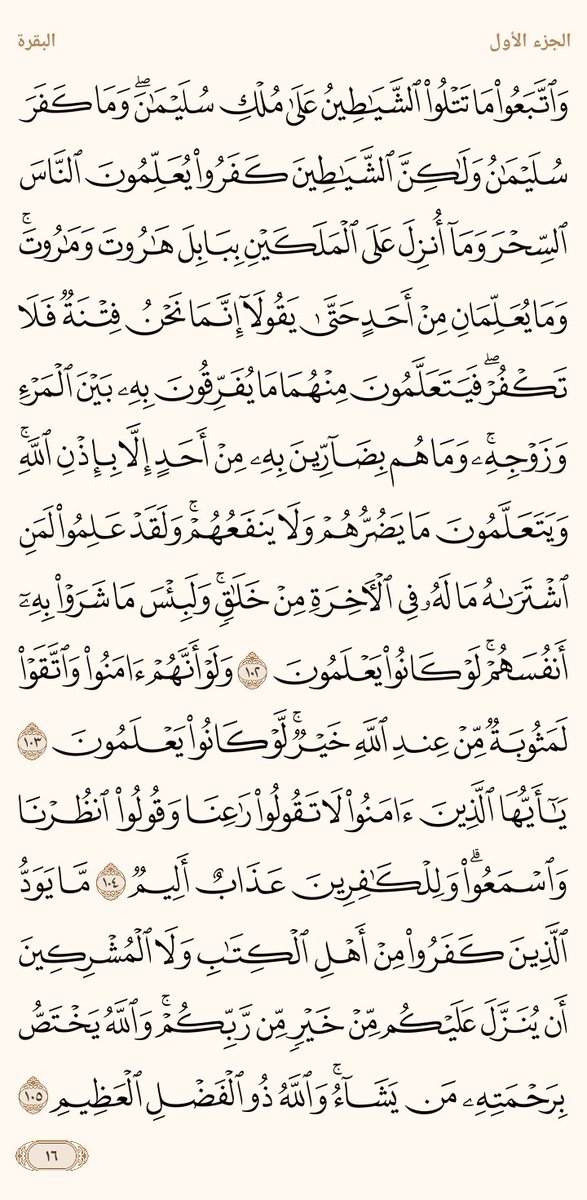 الجزء الأول
البقرة
وَٱتَّبَعُوا۟ مَا تَتْلُوا۟ ٱلشَّيَـٰطِينُ عَلَىٰ مُلْكِ سُلَيْمَـٰنَ ۖ وَمَا كَفَرَ
سُلَيْمَـٰنُ وَلَـٰكِنَّ ٱلشَّيَـٰطِينَ كَفَرُوا۟ يُعَلِّمُونَ ٱلنَّاسَ
ٱلسِّحْرَ وَمَآ أُنزِلَ عَلَى ٱلْمَلَكَيْنِ بِبَابِلَ هَـٰرُوتَ وَمَـٰرُوتَ ۚ
وَمَا يُعَلِّمَانِ مِنْ أَحَدٍ حَتَّىٰ يَقُولَآ إِنَّمَا نَحْنُ فِتْنَةٌ فَلَا
تَكْفُرْ ۖ فَيَتَعَلَّمُونَ مِنْهُمَا مَا يُفَرِّقُونَ بِهِۦ بَيْنَ ٱلْمَرْءِ
وَزَوْجِهِۦ ۚ وَمَا هُم بِضَآرِّينَ بِهِۦ مِنْ أَحَدٍ إِلَّا بِإِذْنِ ٱللَّهِ ۚ
وَيَتَعَلَّمُونَ مَا يَضُرُّهُمْ وَلَا يَنفَعُهُمْ ۚ وَلَقَدْ عَلِمُوا۟ لَمَنِ
ٱشْتَرَىٰهُ مَا لَهُۥ فِى ٱلْـَٔاخِرَةِ مِنْ خَلَـٰقٍ ۚ وَلَبِئْسَ مَا شَرَوْا۟ بِهِۦٓ
أَنفُسَهُمْ ۚ لَوْ كَانُوا۟ يَعْلَمُونَ ١٠٢ وَلَوْ أَنَّهُمْ ءَامَنُوا۟ وَٱتَّقَوْا۟
لَمَثُوبَةٌ مِّنْ عِندِ ٱللَّهِ خَيْرٌ ۖ لَّوْ كَانُوا۟ يَعْلَمُونَ ١٠٣
يَـٰٓأَيُّهَا ٱلَّذِينَ ءَامَنُوا۟ لَا تَقُولُوا۟ رَٰعِنَا وَقُولُوا۟ ٱنظُرْنَا
وَٱسْمَعُوا۟ ۗ وَلِلْكَـٰفِرِينَ عَذَابٌ أَلِيمٌ ١٠٤ مَّا يَوَدُّ
ٱلَّذِينَ كَفَرُوا۟ مِنْ أَهْلِ ٱلْكِتَـٰبِ وَلَا ٱلْمُشْرِكِينَ
أَن يُنَزَّلَ عَلَيْكُم مِّنْ خَيْرٍ مِّن رَّبِّكُمْ ۗ وَٱللَّهُ يَخْتَصُّ
بِرَحْمَتِهِۦ مَن يَشَآءُ ۚ وَٱللَّهُ ذُو ٱلْفَضْلِ ٱلْعَظِيمِ ١٠٥
١٦